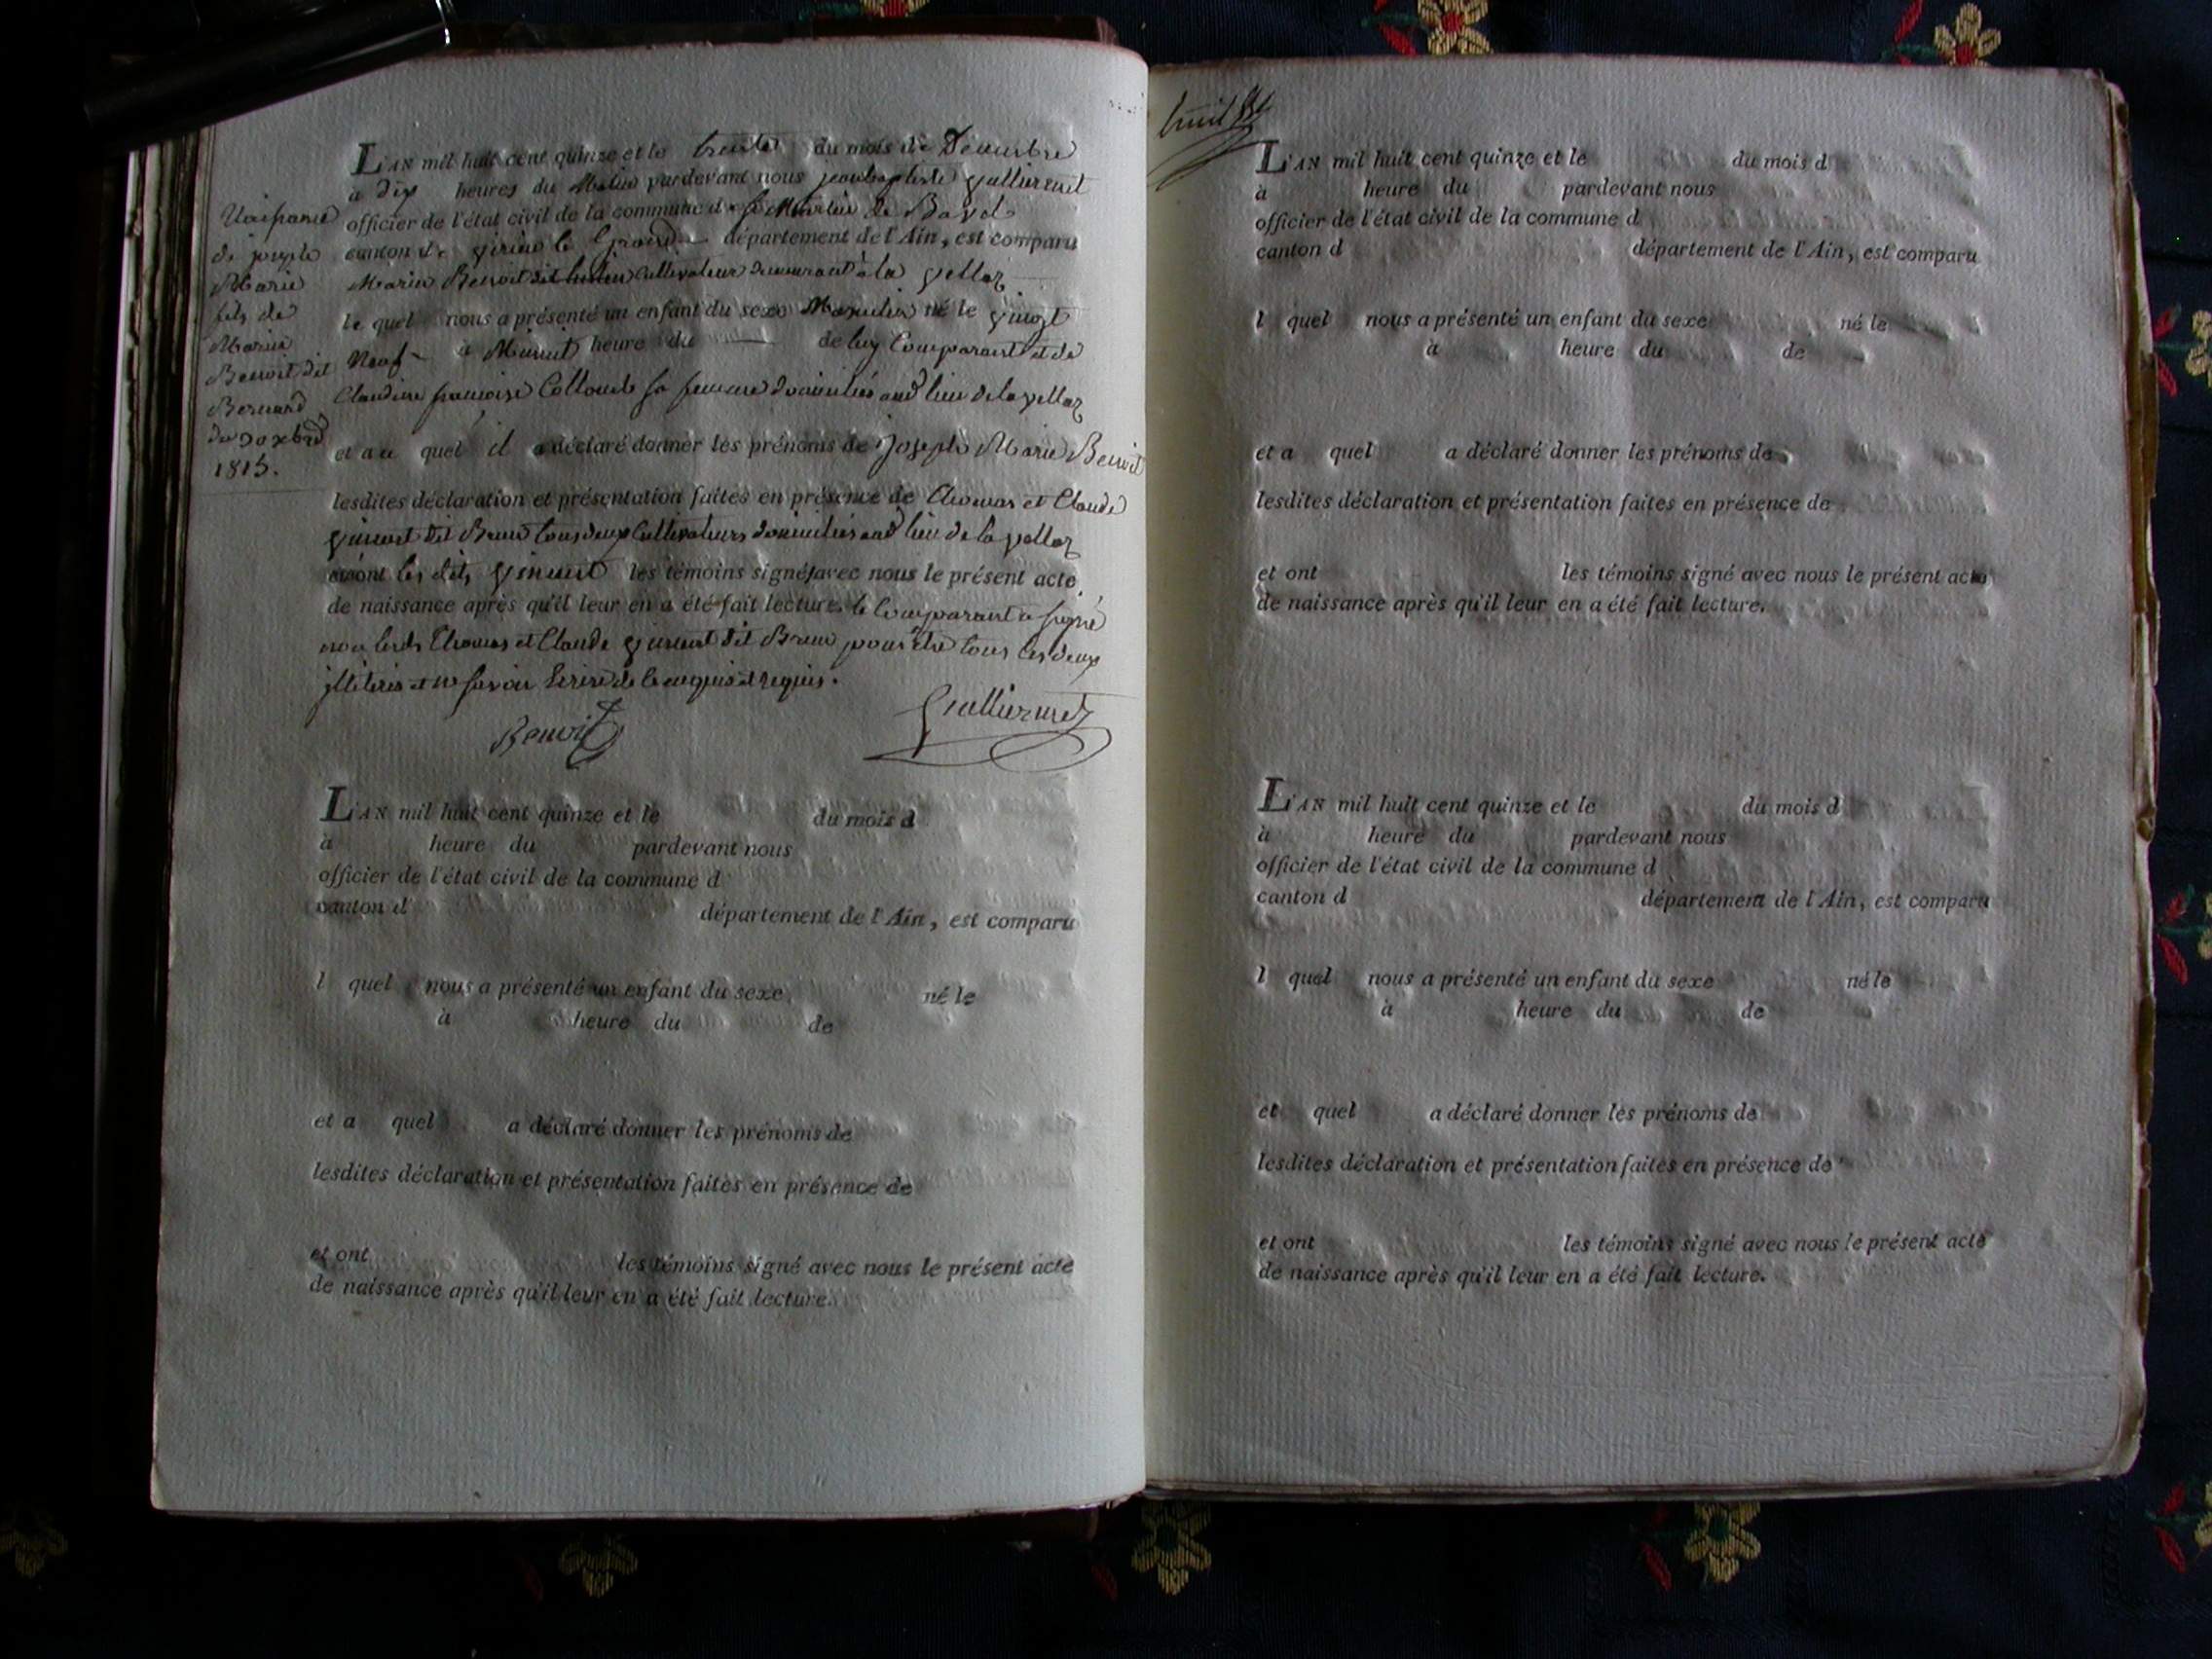 L'AN mil huit cent quinze et le trente du mois de Decembre
à dix heures du Matin pardevant nous jean baptiste
officier de l'état civil de la commune de st Martin de Bavel
canton de le grand département de l'Ain, est comparu
Marin Benoit dit cultivateur demeurant à la
le quel nous a présenté un enfant du sexe Masculin né le vingt
Neuf à Minuit heure du de luy Comparant et de
Claudine françoise Collomb sa femme domiciliés aud lieu de la
et au quel il a déclaré donner les prénoms de joseph Marie Benoit
lesdites déclaration et présentation faites en présence de Thomas et Claude
dit Brun tous deux Cultivateurs domiciliés aud lieu de la
et ont les dits les témoins signé avec nous le présent acte
de naissance après qu'il leur en a été fait lecture. le Comparant a signé
non lesds Thomas et Claude dit Brun pour être tous les deux
illitérés et ne savoir Ecrire de ce enquis et requis.
Benoit
Naissance
de joseph
Marie
fils de
Marin
Benoit dit
Bernard
du 30 xbre
1815.
L'AN mil huit cent quinze et le du mois d
à heure du pardevant nous
officier de l'état civil de la commune d
canton d département de l'Ain, est comparu
l quel nous a présenté un enfant du sexe né le
à heure du de
et a quel a déclaré donner les prénoms de
lesdites déclaration et présentation faites en présence de
et ont les témoins signé avec nous le présent acte
de naissance après qu'il leur en a été fait lecture.
L'AN mil huit cent quinze et le du mois d
à heure du pardevant nous
officier de l'état civil de la commune d
canton d département de l'Ain, est comparu
l quel nous a présenté un enfant du sexe né le
à heure du de
et a quel a déclaré donner les prénoms de
lesdites déclaration et présentation faites en présence de
et ont les témoins signé avec nous le présent acte
de naissance après qu'il leur en a été fait lecture.
L'AN mil huit cent quinze et le du mois d
à heure du pardevant nous
officier de l'état civil de la commune d
canton d département de l'Ain, est comparu
l quel nous a présenté un enfant du sexe né le
à heure du de
et quel a déclaré donner les prénoms de
lesdites déclaration et présentation faites en présence de
et ont les témoins signé avec nous le présent acte
de naissance après qu'il leur en a été fait lecture.